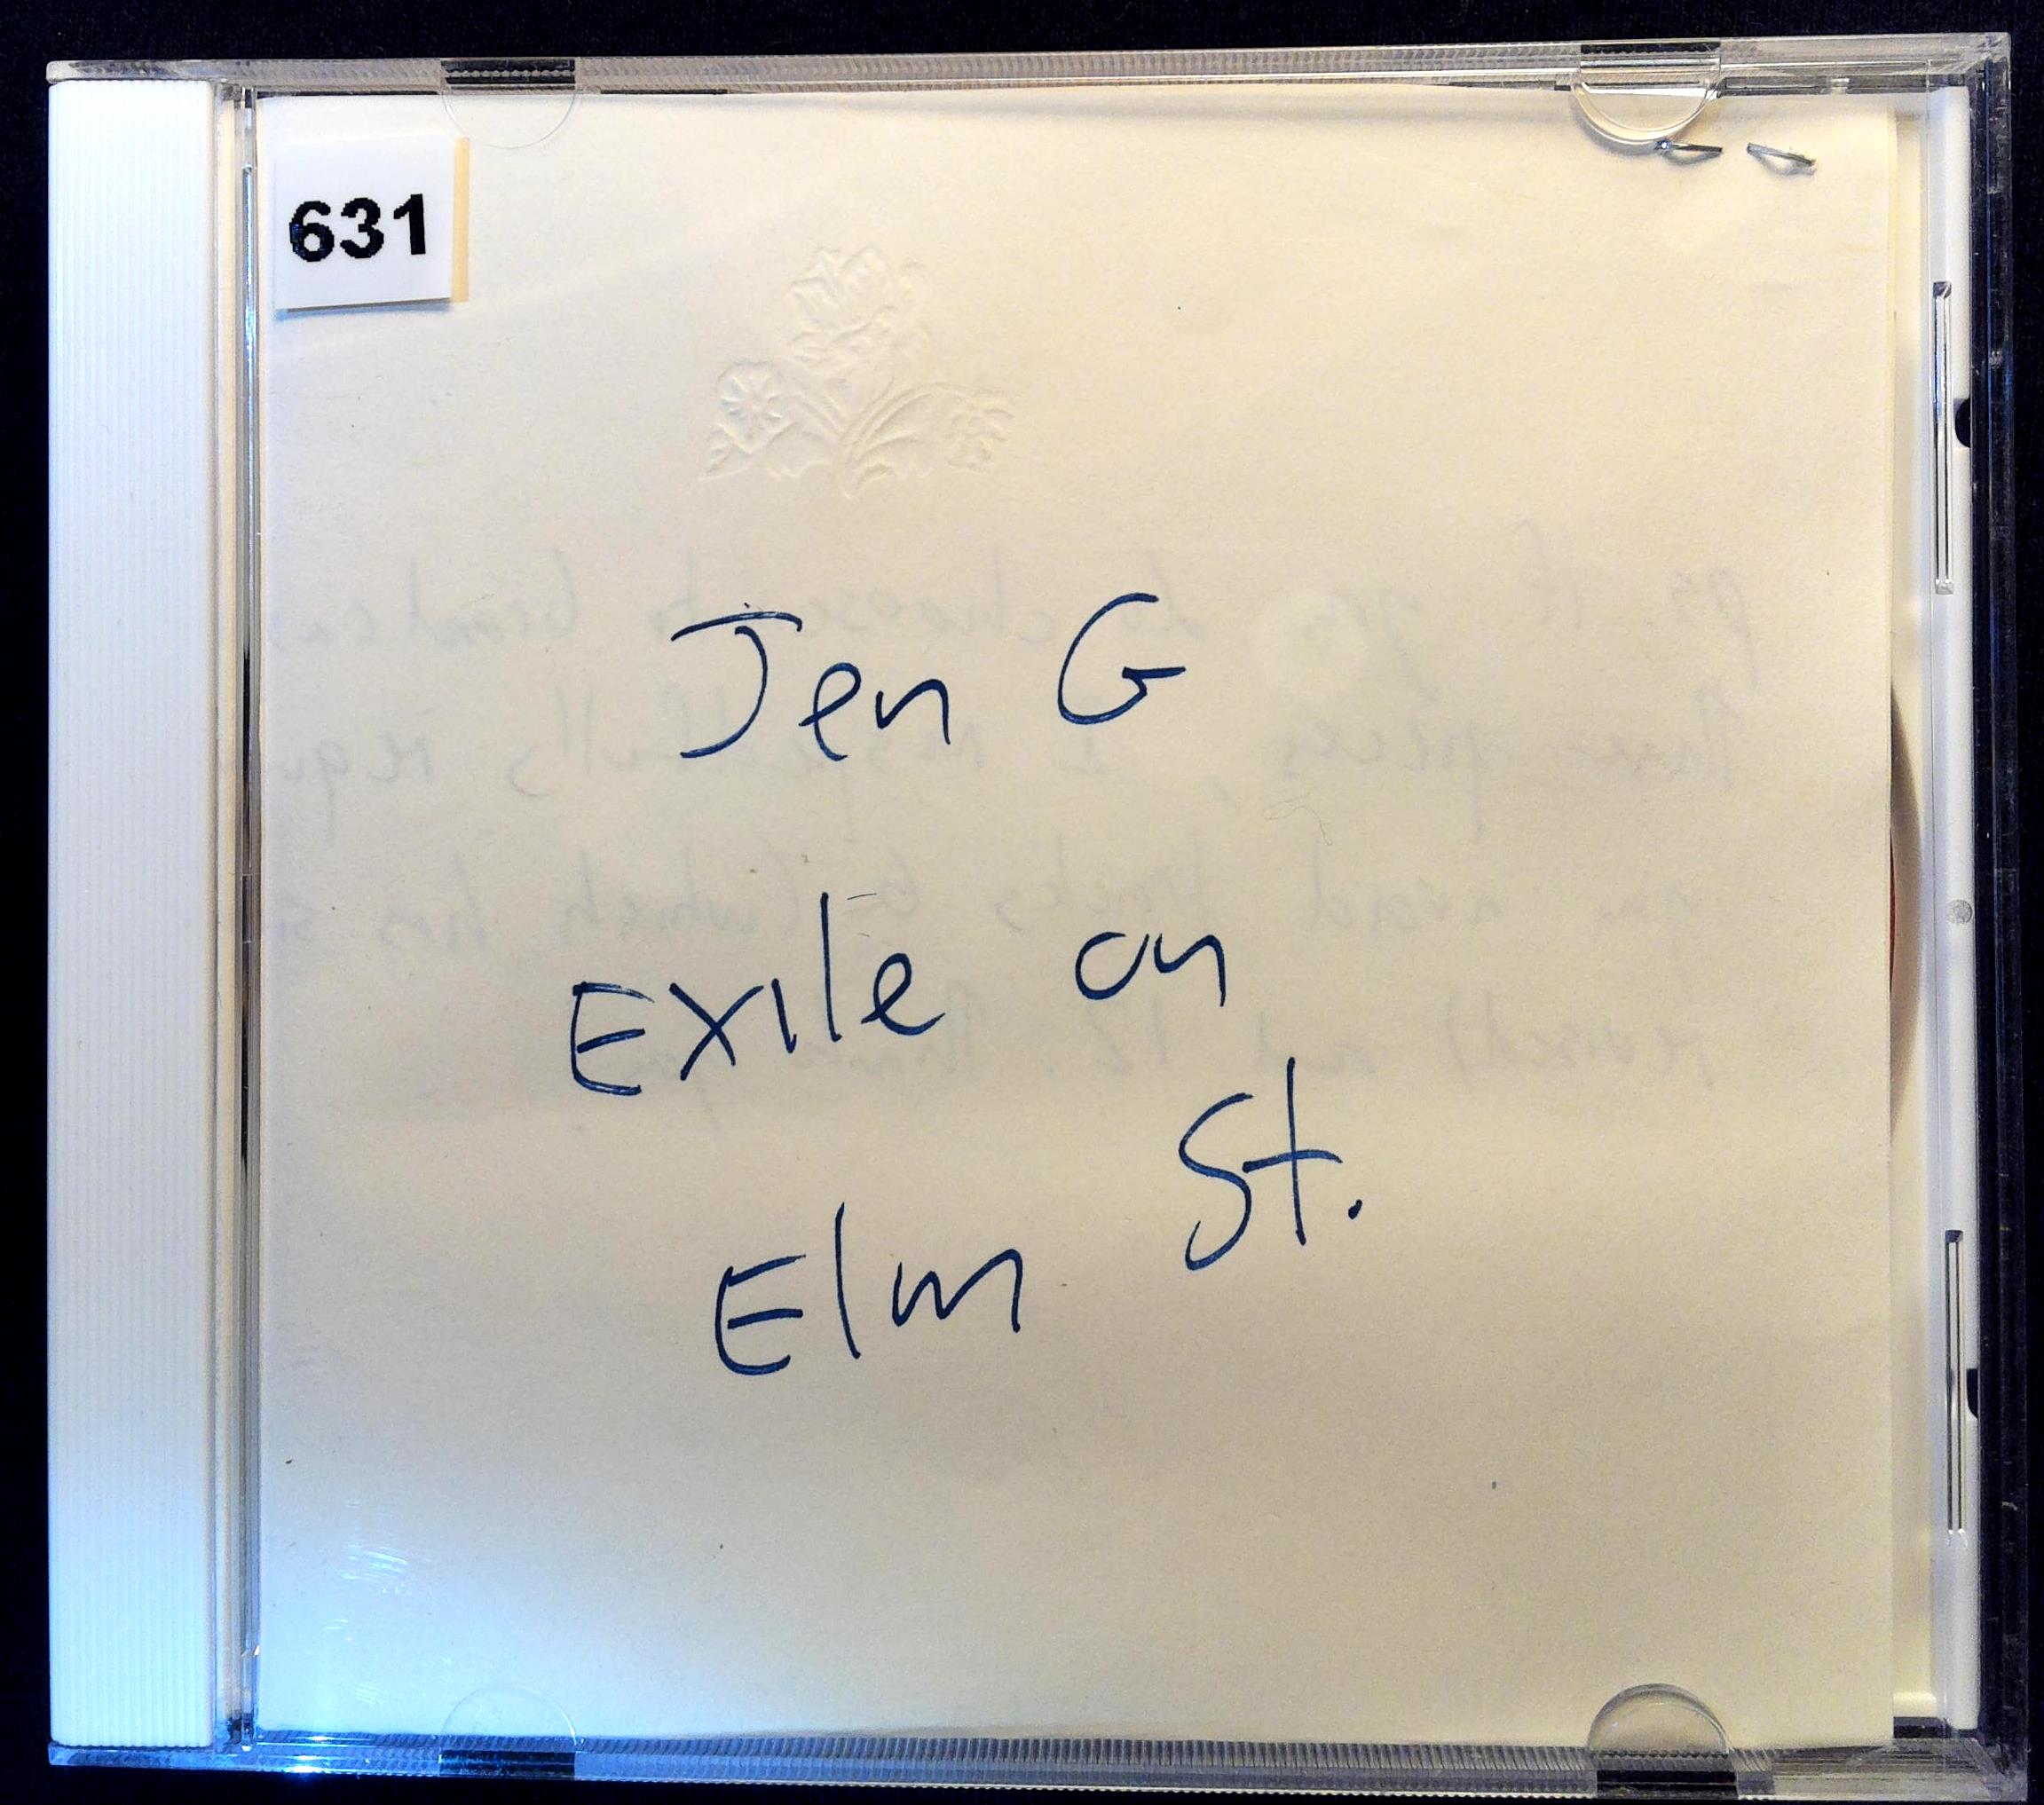 631
Jen G
Exile on
Elm St.